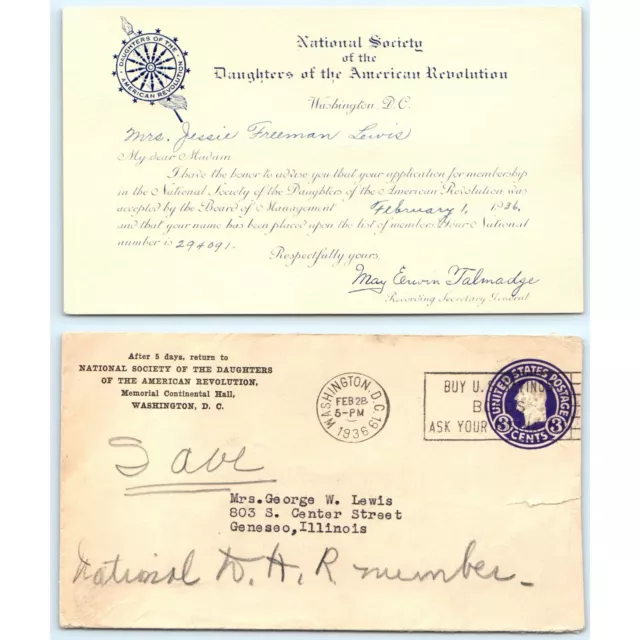 DAUGHTERS OF THE
AMERICAN REVOLUTION
National Society
of the
Daughters of the American Revolution
Washington D.C.
Mrs. Jessie Freeman Lewis
My dear Madam
I have the honor to advise you that your application for membership
in the National Society of the Daughters of the American Revolution was
accepted by the Board of Management February 1, 1936.
and that your name has been placed upon the list of members. Your National
number is 294091.
Respectfully yours,
May Erwin Talmadge
Recording Secretary General
After 5 days, return to
NATIONAL SOCIETY OF THE DAUGHTERS
OF THE AMERICAN REVOLUTION,
Memorial Continental Hall,
WASHINGTON, D. C.
WASHINGTON, D.C. 19
FEB 28
5-PM
1936
BUY U.
ASK YOUR
UNITED STATES POSTAGE
3 CENTS 3
Save
Mrs. George W. Lewis
803 S. Center Street
Geneseo, Illinois
National D. A. R member.